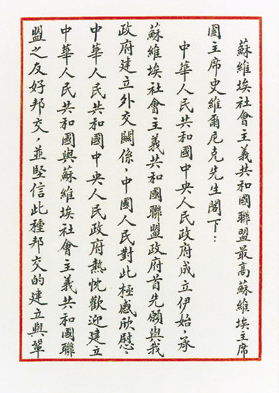 蘇維埃社會主義共和國聯盟最高蘇維埃主席
團主席史維爾尼克先生閣下：
中華人民共和國中央人民政府成立伊始，承
蘇維埃社會主義共和國聯盟政府首先願與我
政府建立外交關係，中國人民對此極感欣慰。
中華人民共和國中央人民政府熱忱歡迎建立
中華人民共和國與蘇維埃社會主義共和國聯
盟之友好邦交，並堅信此種邦交的建立與鞏